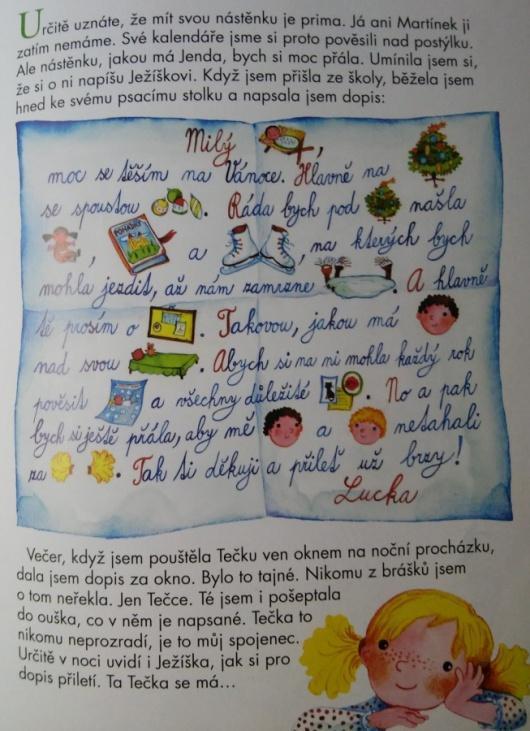 Určitě uznáte, že mít svou nástěnku je prima. Já ani Martínek ji
zatím nemáme. Své kalendáře jsme si proto pověsili nad postýlku.
Ale nástěnku, jakou má Jenda, bych si moc přála. Umínila jsem si,
že si o ni napíšu Ježíškovi. Když jsem přišla ze školy, běžela jsem
hned ke svému psacímu stolku a napsala jsem dopis:
Milý ,
moc se těším na Vánoce. Hlavně na
se spoustou . Ráda bych pod našla
, POHÁDKY a , na kterých bych
mohla jezdit, až nám zamrzne . A hlavně
tě prosím o . Takovou, jakou má
nad svou . Abych si na ni mohla každý rok
pověsit a všechny důležité . No a pak
bych si ještě přála, aby mě a netahali
za . Tak ti děkuji a přileť už brzy!
Lucka
Večer, když jsem pouštěla Tečku ven oknem na noční procházku,
dala jsem dopis za okno. Bylo to tajné. Nikomu z brášků jsem
o tom neřekla. Jen Tečce. Té jsem i pošeptala
do ouška, co v něm je napsané. Tečka to
nikomu neprozradí, je to můj spojenec.
Určitě v noci uvidí i Ježíška, jak si pro
dopis přiletí. Ta Tečka se má...